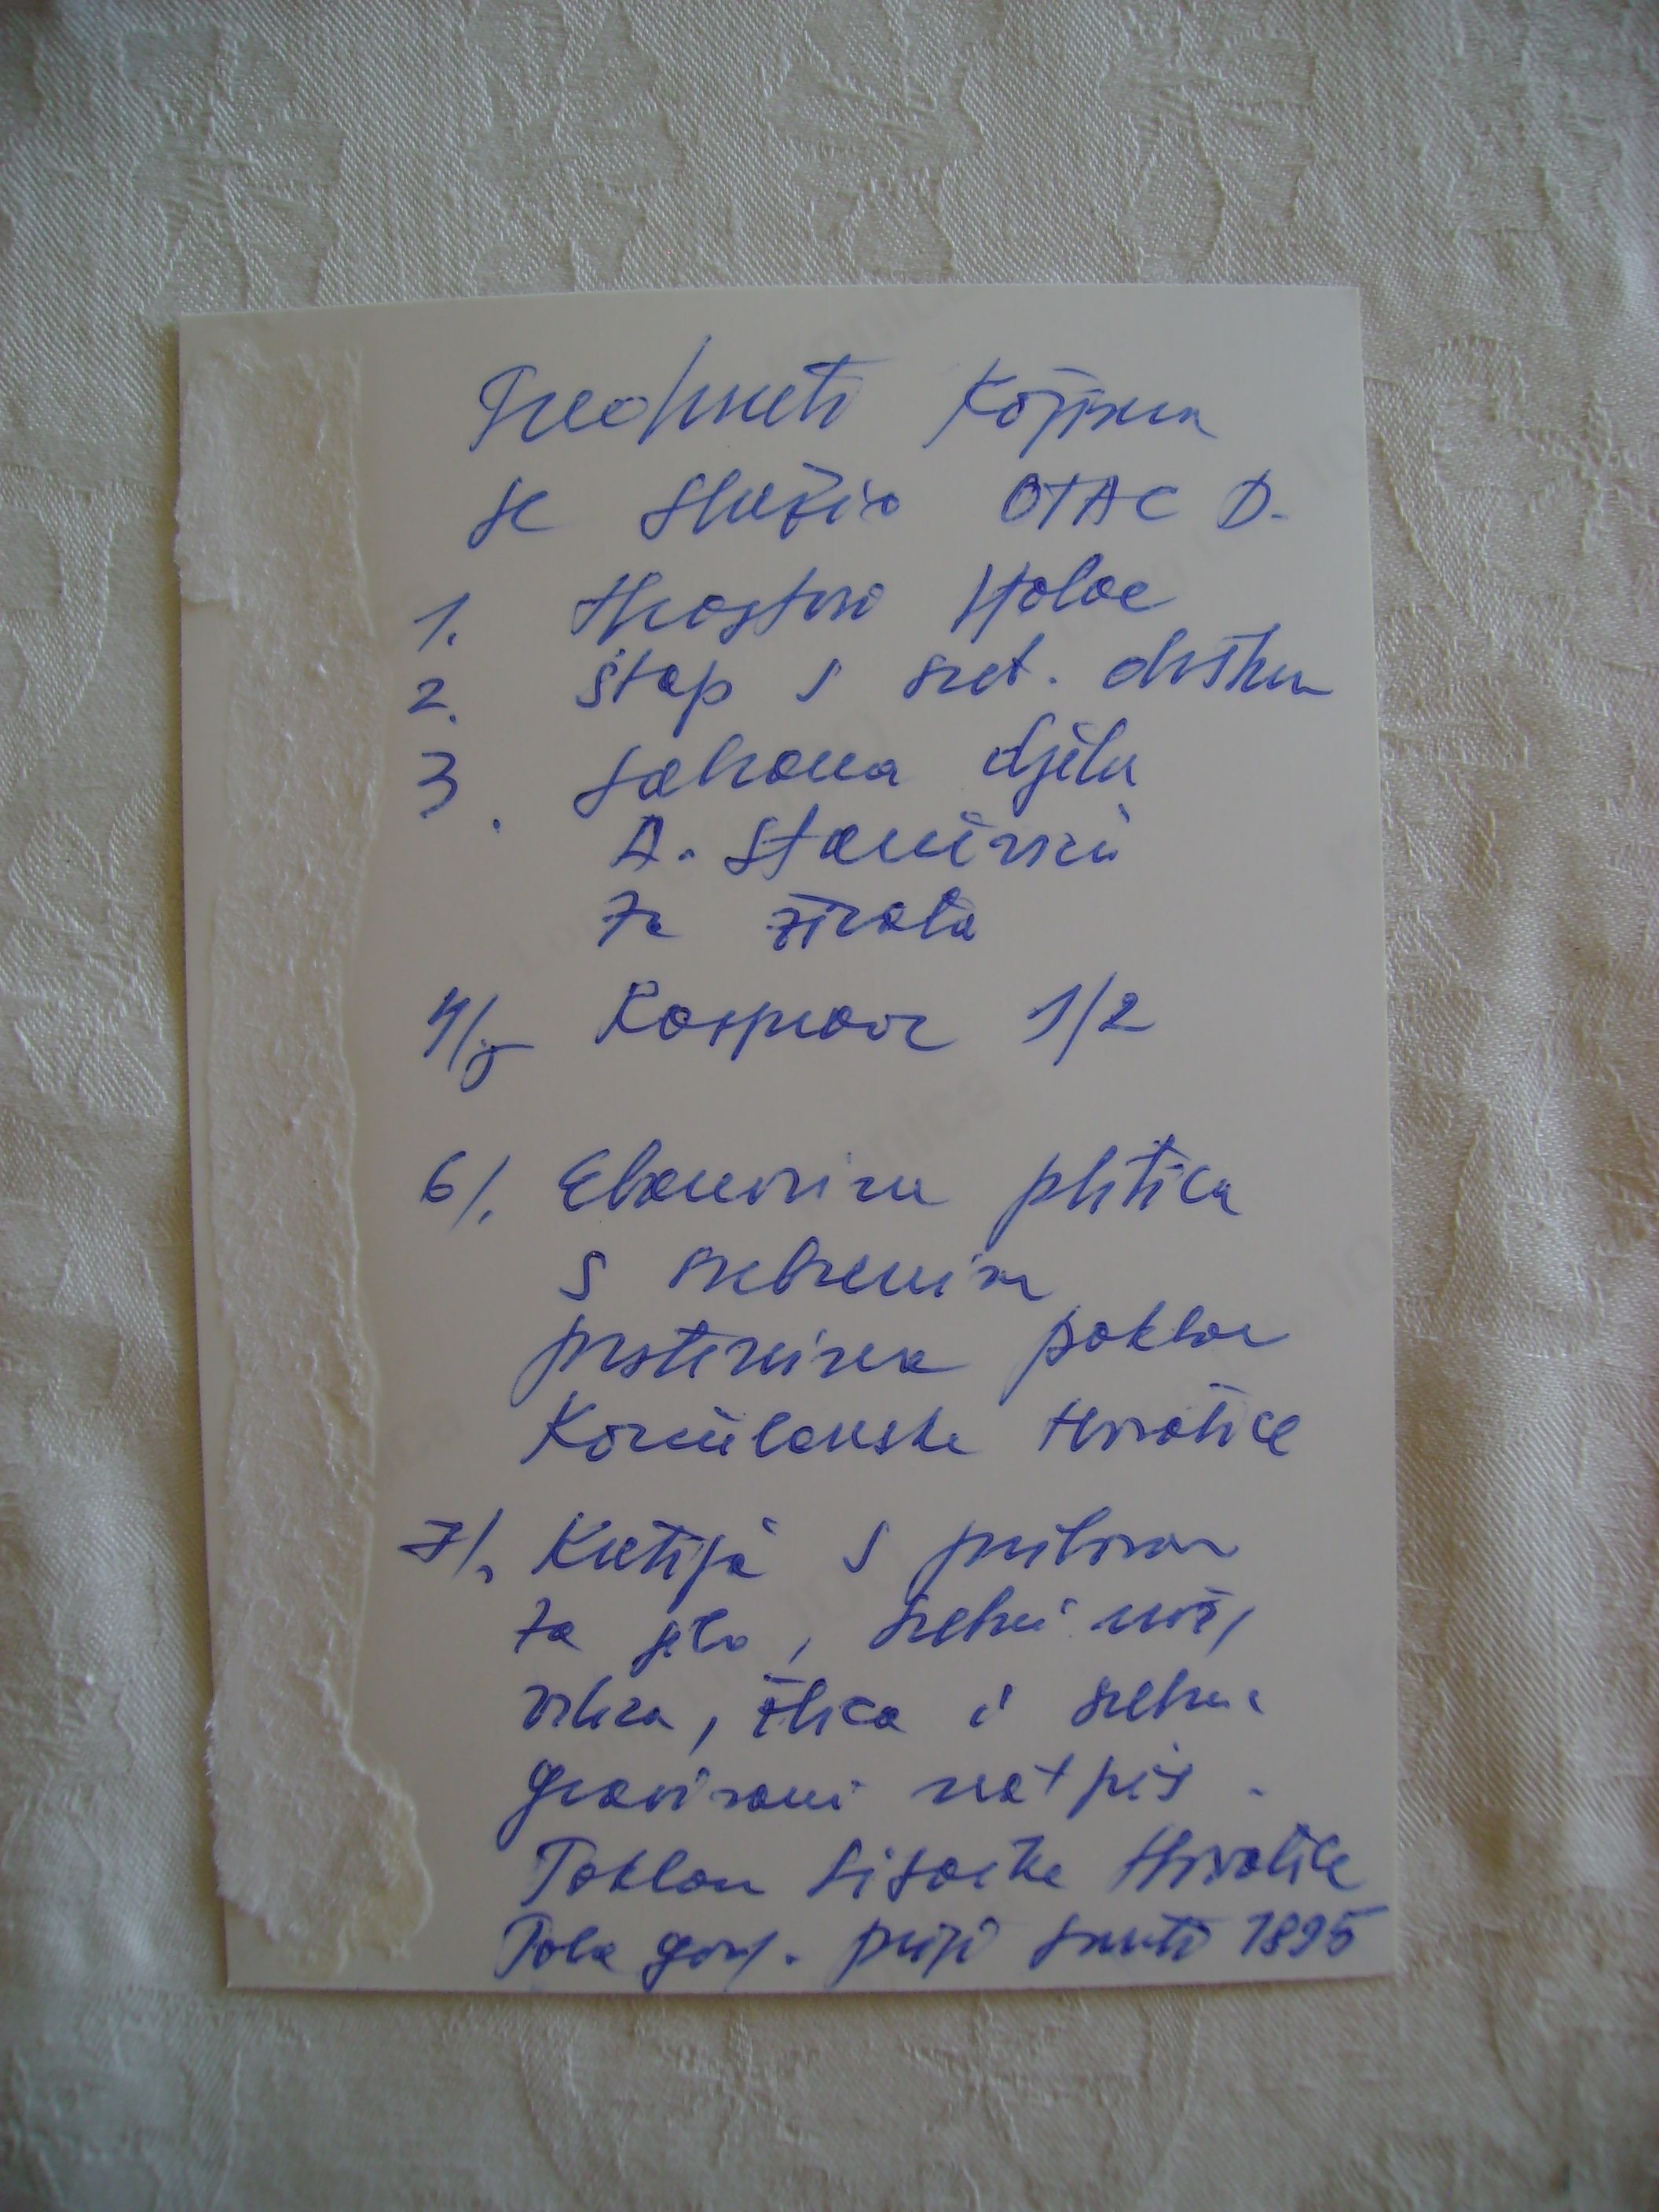 Predmeti kojima
se služio OTAC D.
1. Hrastov stolac
2. Štap s sret. drškom
3. Sabrana djela
A. Starčević
za života
4/5 Rasprave 1/2
6/. Ebanovina pletica
s srebrenim
prstenima poklon
Korčulanske Hrvatice
7/. Kutija s priborom
za jelo, srebrni nož,
vilica, žlica i srebrni
gravirani natpis.
Poklon Sisačke Hrvatice
Pola god. prije smrti 1895